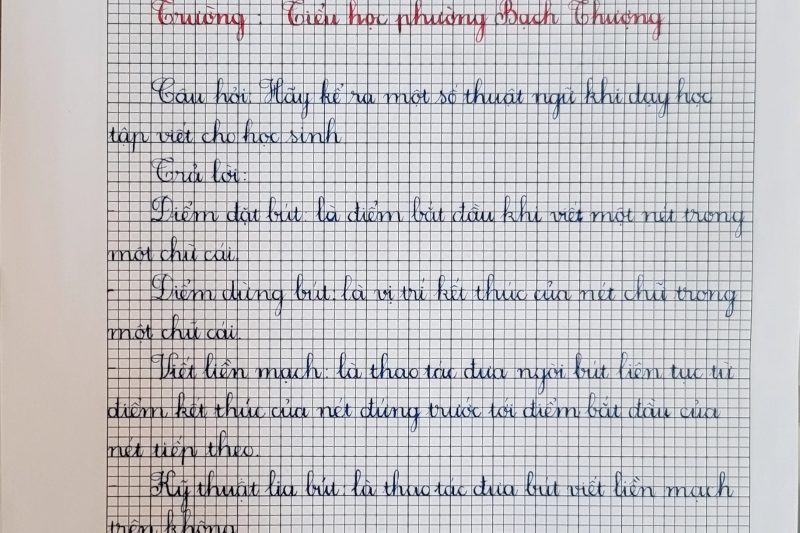 Trường: Tiểu học phường Bạch Thượng
Câu hỏi: Hãy kể ra một số thuật ngữ khi dạy học
tập viết cho học sinh
Trả lời:
- Điểm đặt bút: là điểm bắt đầu khi viết một nét trong
một chữ cái.
- Điểm dừng bút: là vị trí kết thúc của nét chữ trong
một chữ cái.
- Viết liền mạch: là thao tác đưa ngòi bút liên tục từ
điểm kết thúc của nét đứng trước tới điểm bắt đầu của
nét tiếp theo.
- Kỹ thuật lia bút: là thao tác đưa bút viết liền mạch
trên không